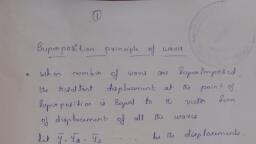 ①
Superposition principle of waves
• When number of waves are superimposed,
the resultant displacement at the point of
superposition is equal to the vector sum
of displacement of all the waves
let y̅₁ y̅₂ y̅₃ ..... be the displacements